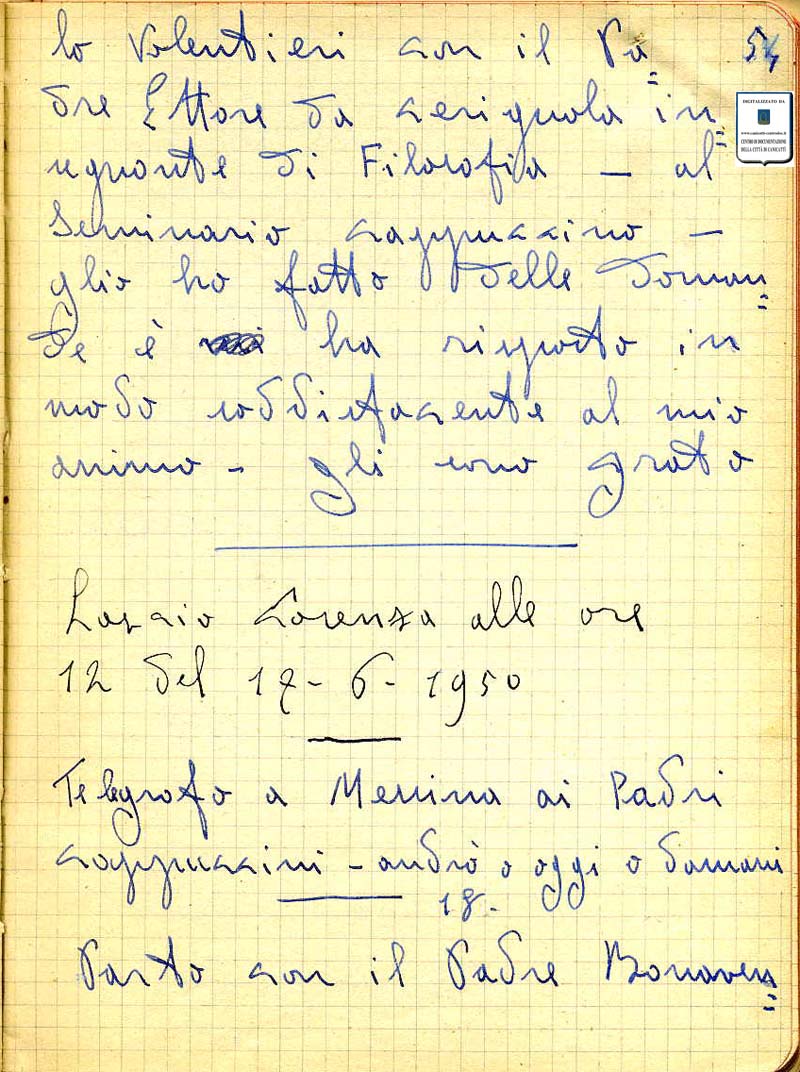 lo volentieri con il Pa= 54
dre Ettore da Cerignola in=
segnante di Filosofia – al
Seminario Cappuccino –
glio ho fatto delle doman=
de è ha risposto in
modo soddisfacente al mio
animo – gli sono grato
Lascio Cosenza alle ore
12 del 17 - 6 - 1950
Telegrafo a Messina ai Padri
Cappuccini – andrò o oggi o domani
18.
Parto con il Padre Bonaven=
DIGITALIZZATO DA
CENTRO DI DOCUMENTAZIONE
DELLA CITTÀ DI CANICATTÌ